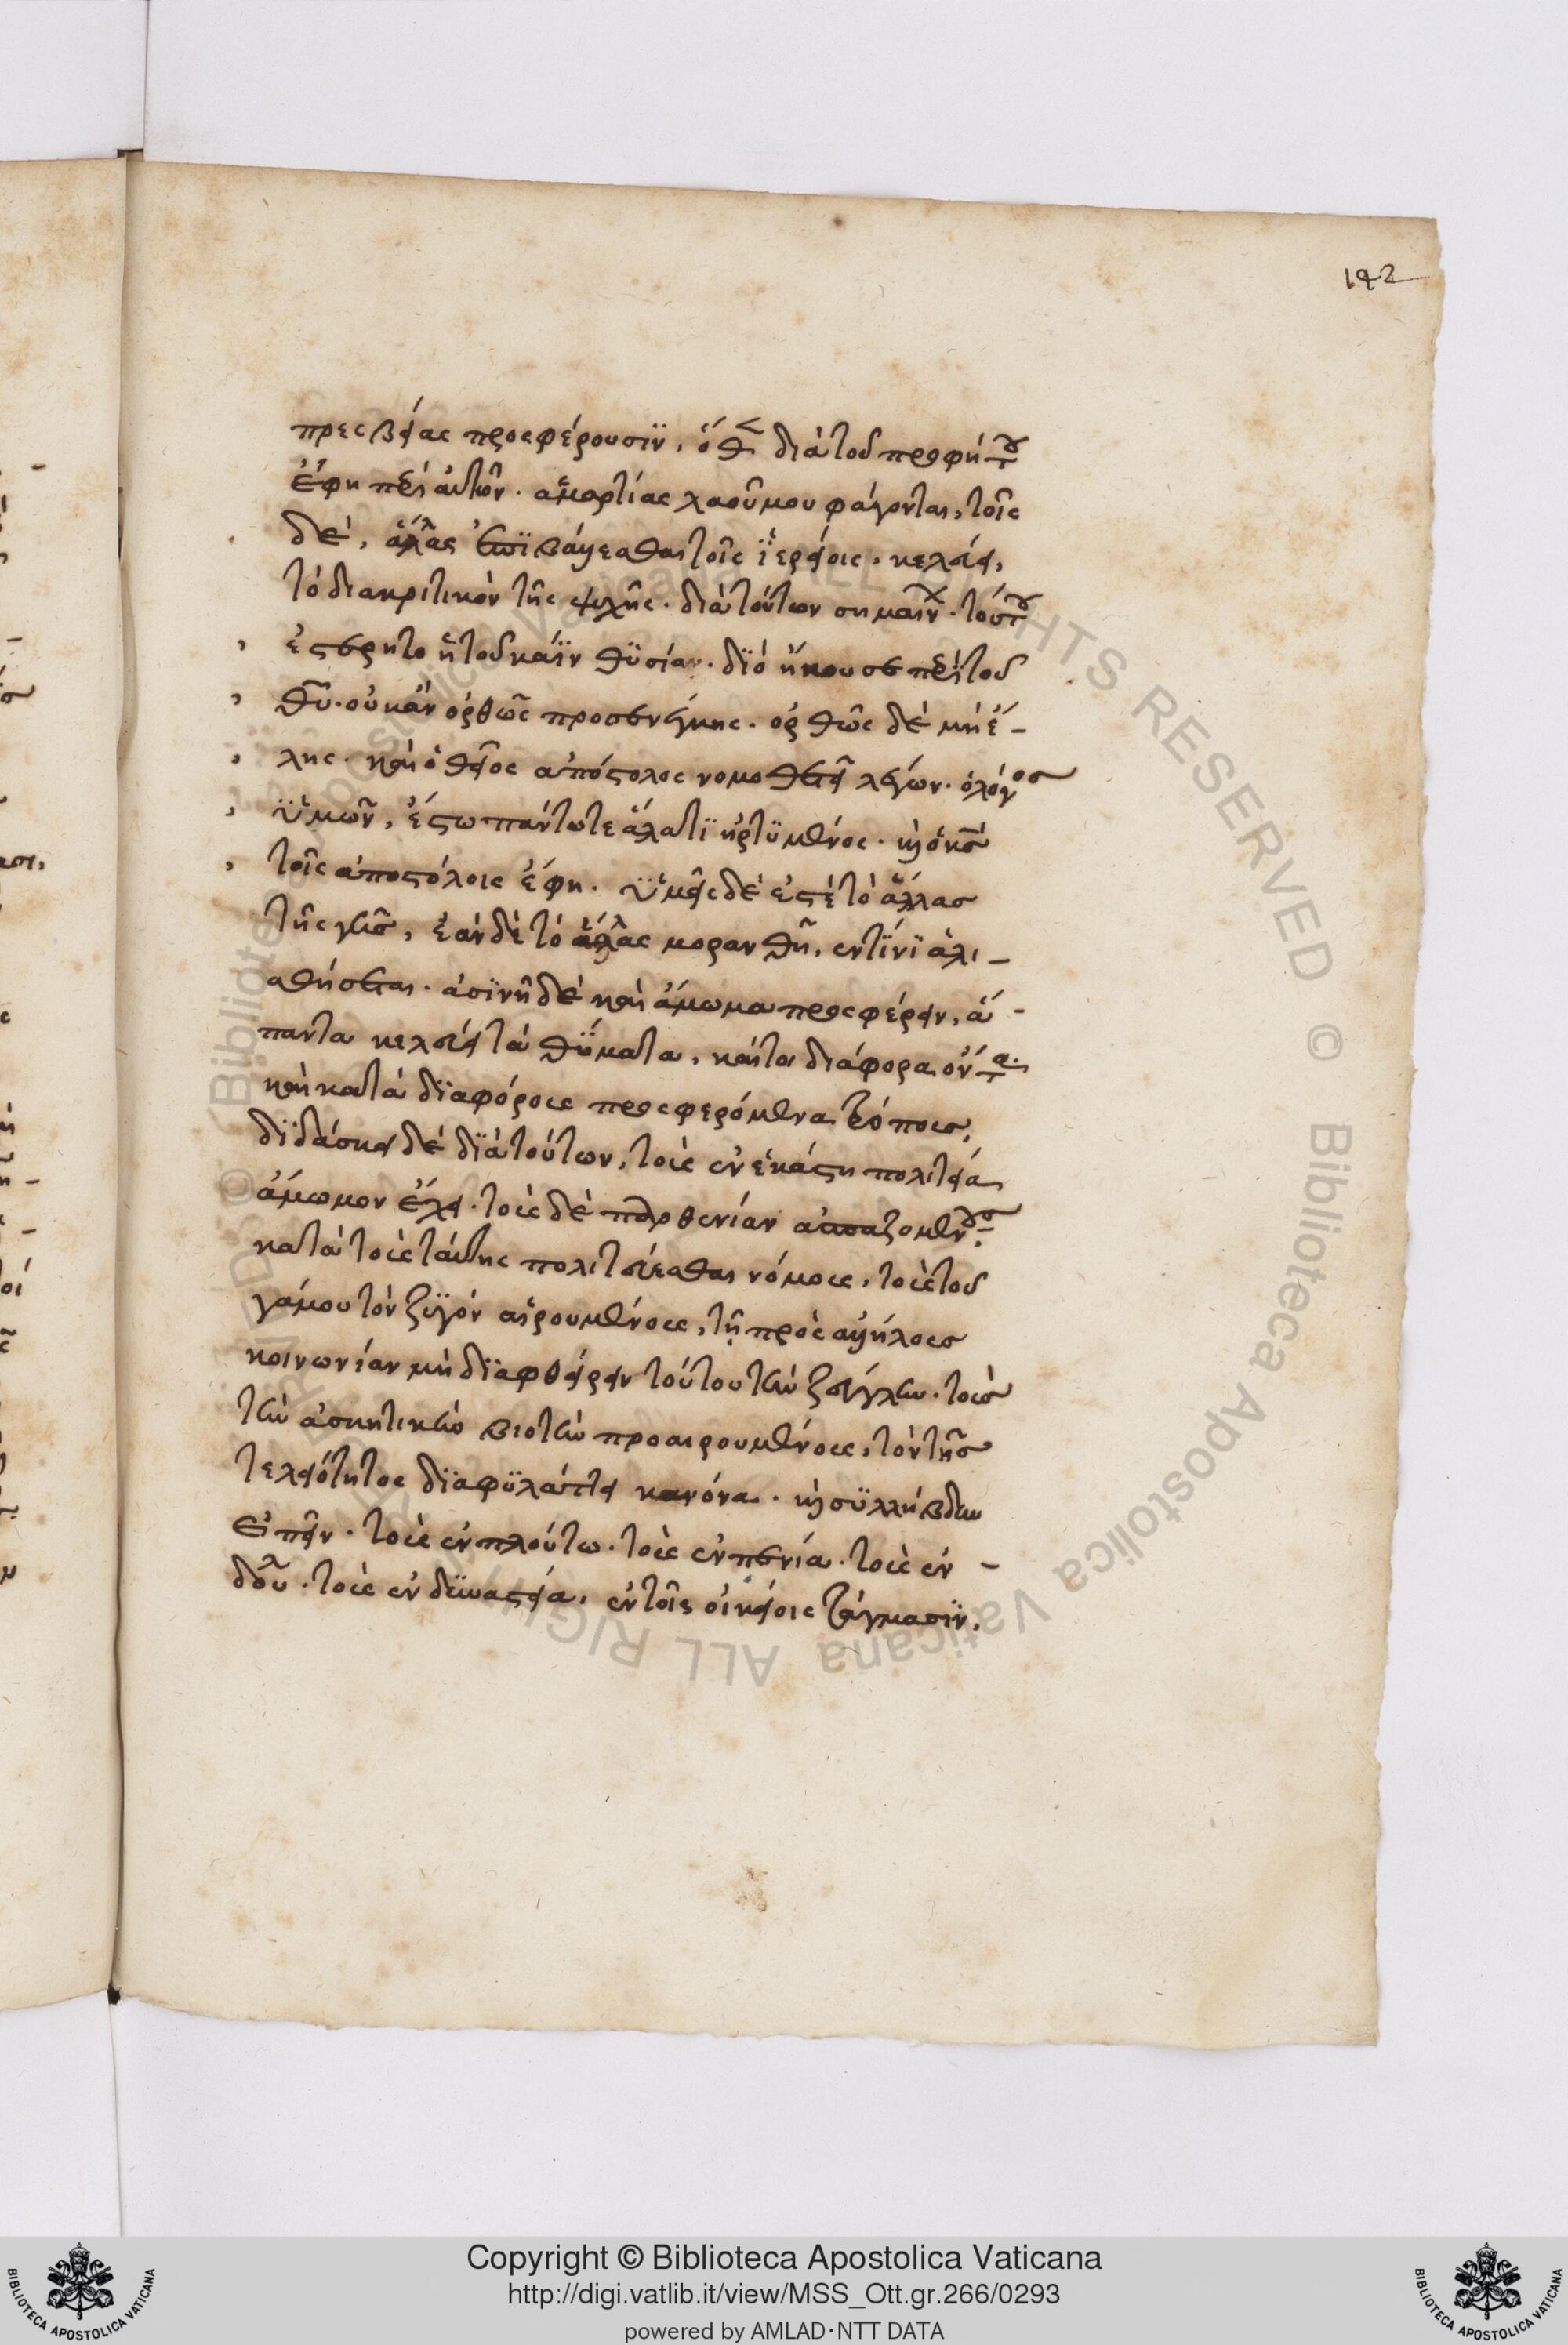 142
πρεσβείας προσφέρουσϊν. ὅθεν διὰ τοῦ προφήτου
ἔφη περὶ αὐτῶν. ἁμαρτίας λαοῦ μου φάγονται, τοῖς
δὲ, ἅλας ἐπϊβάλλεσθαι τοῖς ἱερείοις, κελεύει,
τὸ διακριτικὸν τῆς ψυχῆς. διὰ τούτων σημαίνων. τούτου
ἐστέρητο ἡ τοῦ κάϊν θϋσία. δϊὸ ἤκουσε περὶ τοῦ
θυ. οὐκ ἂν ὀρθῶς προσενέγκης. ὀρθῶς δὲ μὴ ἕ-
λης. καὶ ὁ θεῖος ἀπόστολος νομοθετεῖ λέγων. ὁ λόγος
ϋμῶν, ἔστω πάντοτε ἅλατϊ ἠρτϋμένος. καὶ ὁ κς
τοῖς ἀποστόλοις ἔφη. ϋμεῖς δὲ ἐστὲ τὸ ἅλλας
τῆς γῆς, ἐὰν δὲ τὸ ἅλας μορανθῆ, εν τϊνϊ ἁλι-
σθήσεται. ἀσϊνῆ δὲ καὶ ἄμωμα προσφέρειν, ἅ-
παντα κελεύει τὰ θϋματα, καίτοι διάφορα ὄντα.
καὶ κατὰ δϊαφόρους προσφερόμενα τρόπους,
δϊδάσκει δὲ δϊὰ τούτων, τοὺς ἐν ἑκάστη πολιτεία
ἄμωμον ἔχει. τοὺς δὲ παρθενίαν ἀσπαζομένους.
κατὰ τοὺς ταύτης πολιτεύεσθαι νόμους, τοὺς τοῦ
γάμου τὸν ζϋγὸν αἱρουμένους, τῆ πρὸς ἀλλήλους
κοινωνίαν μὴ δϊαφθείρειν τούτου τὴν ζεύγλην. τοὺς
τὴν ἀσκητικὴν βιοτὴν προαιρουμένους, τὸν τῆς
τελειότητος δϊαφϋλάττει κανόνα. καὶ σϋλλήβδην
εἰπεῖν. τοὺς ἐν πλούτω. τοὺς ἐν πενία. τοὺς ἐν -
δου. τοὺς ἐν δϋναστεία, ἐν τοῖς οἰκείοις τάγμασϊν,
Copyright © Biblioteca Apostolica Vaticana
http://digi.vatlib.it/view/MSS_Ott.gr.266/0293
powered by AMLAD·NTT DATA